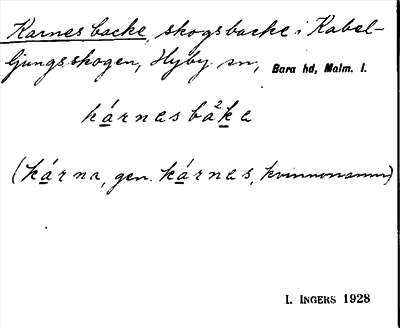 Karnes backe, skogsbacke i Kabel-
ljungsskogen, Hyby sn, Bara hd, Malm. l.
kárnas bà²ka
(kárna, gen. kárnas, kvinnonamn)
I. INGERS 1928